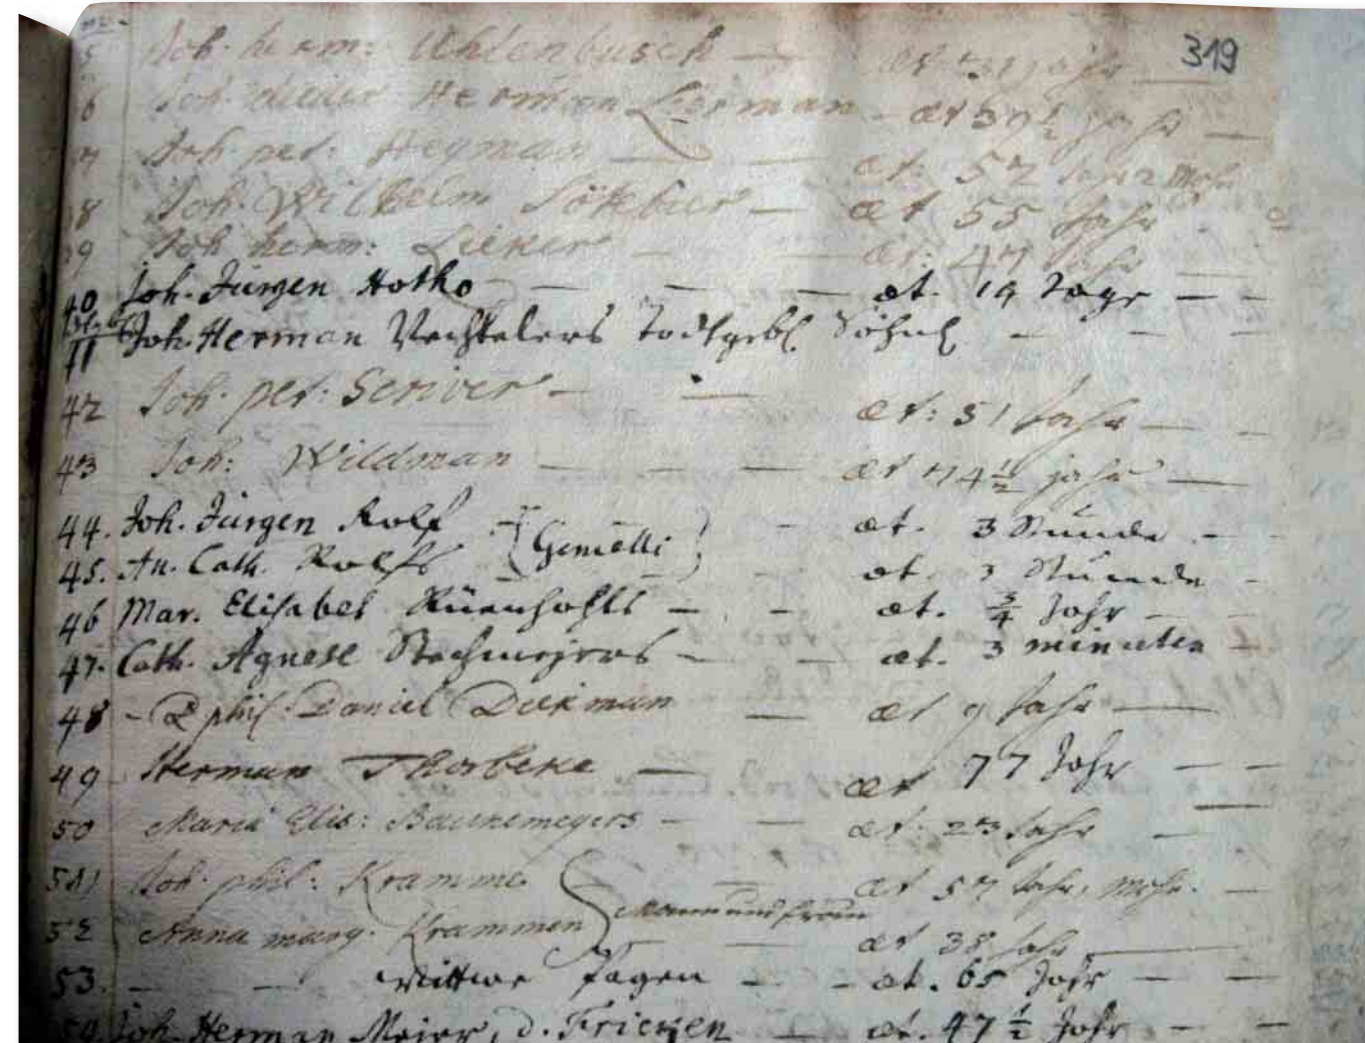 319
5 Joh. herm: Uhlenbusch — æt 31 jahr —
6 Joh. dieder Herman Lierman - æt 39½ Jahr —
7 Joh. pet: Hegman — — æt: 57 Jahr 2 Moh.
38 Joh. Wilhelm Sötebier — æt 55 Jahr
39 Joh herm: Lieker — — æt: 47 Jahr
40 Joh. Jürgen Hotho — — — æt. 19 Tage — —
41 Joh. Herman Vechtelers Todtgebl. Söhnl — — —
42 Joh. pet: Scriver — — æt: 51 Jahr — —
43 Joh: Wildman — — — æt 74½ jahr —
44. Joh. Jürgen Rolf — { Gemelli } - æt. 3 Stunde — —
45. An. Cath. Rolfs - æt. 3 Stunde -
46 Mar. Elisabet — - æt. ¾ Jahr —
47. Cath. Agnese Stechmejers — — æt. 3 minuten —
48 - phil. Daniel Diekman — æt 9 Jahr —
49 Herman Thorbeke — æt 77 Jahr — —
50 Maria Elis: Baunemeyers — — æt: 23 Jahr —
51 Joh. phil: Kramme { — æt 57 Jahr, Moh. —
Mann und frau
52 Anna marg. Krammen — æt 38 Jahr —
53. - — — Wittwe Hagen — - æt. 65 Jahr — —
54. Joh. Herman Meier, d. Friesen — æt. 47½ Jahr — —